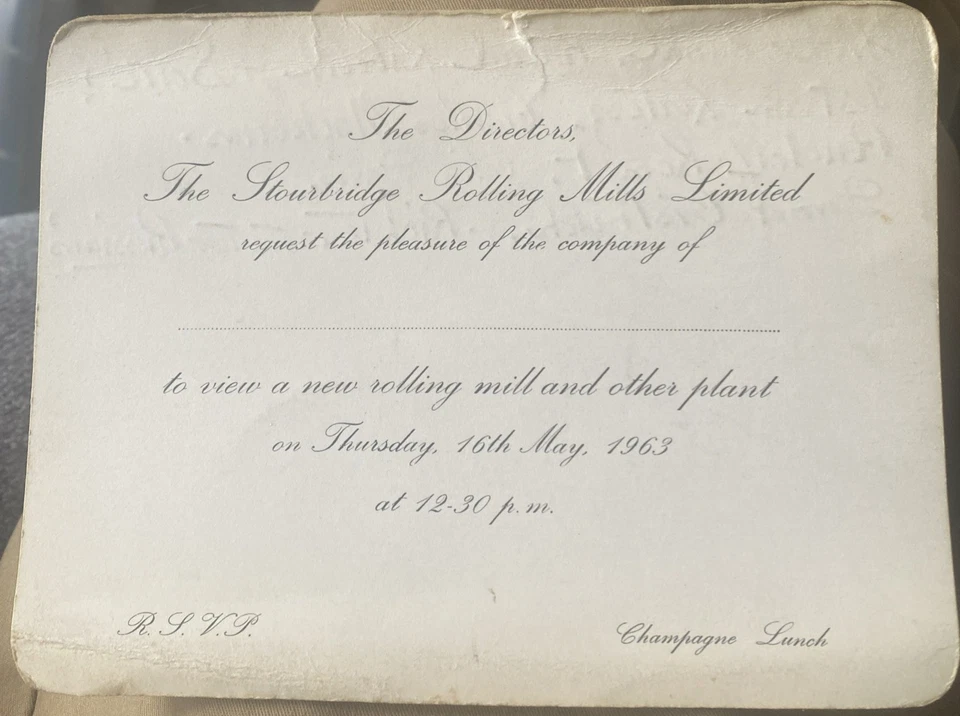 The Directors,
The Stourbridge Rolling Mills Limited
request the pleasure of the company of
to view a new rolling mill and other plant
on Thursday, 16th May, 1963
at 12-30 p.m.
R.S.V.P.
Champagne Lunch